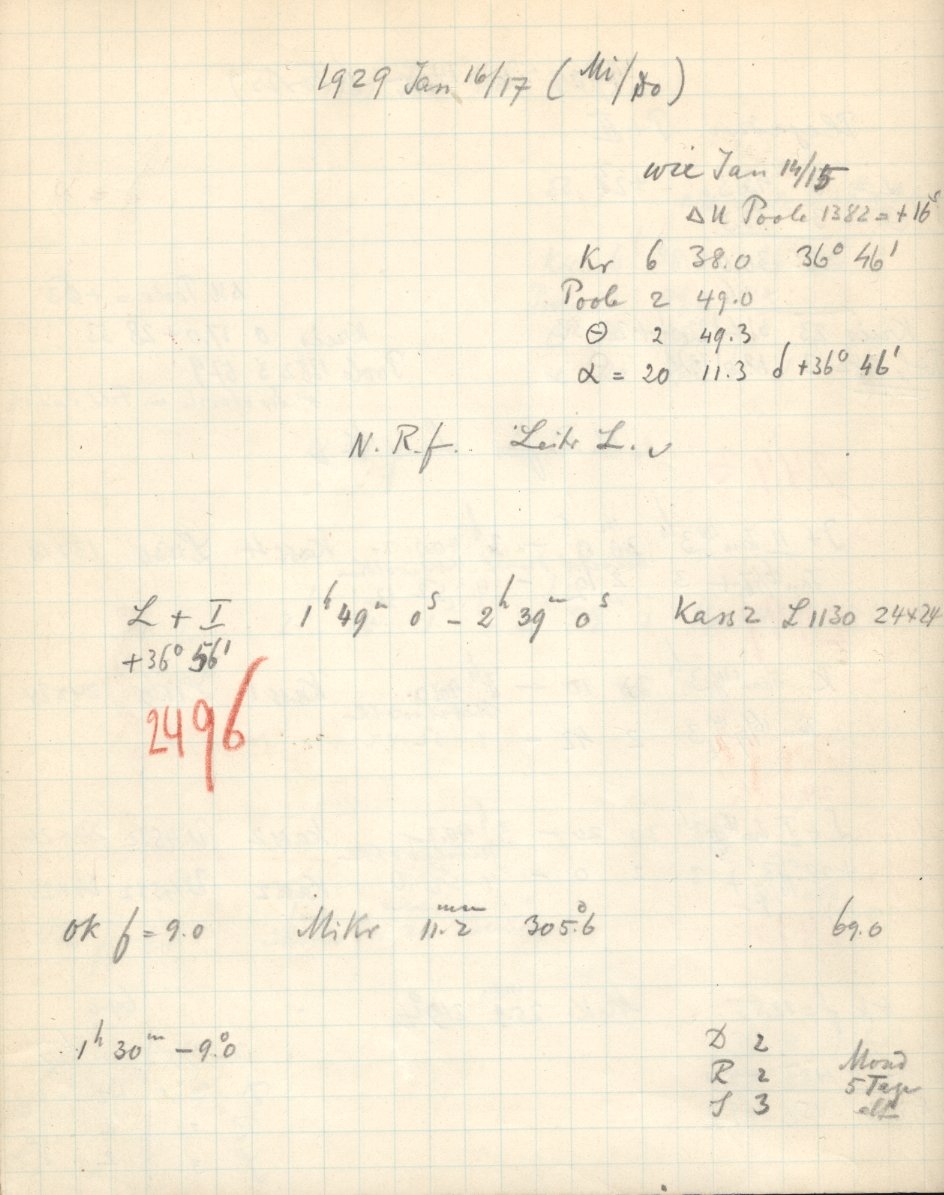 1929 Jan 16/17 (Mi/Do)
wie Jan 14/15
ΔU Poole 1382 = +16ˢ
Kr 6 38.0 36° 46'
Poole 2 49.0
Θ 2 49.3
α = 20 11.3 δ +36° 46'
N. R. f. Leitr L.
L + I 1ʰ 49ᵐ 0ˢ – 2ʰ 39ᵐ 0ˢ Kass 2 L 1130 24×24
+36° 56'
2496
Ok f = 9.0 Mikr 11.2 mm 305.°6 69.0
1ʰ 30ᵐ –9.°0
D 2
R 2 Mond
S 3 5 Tage
alt